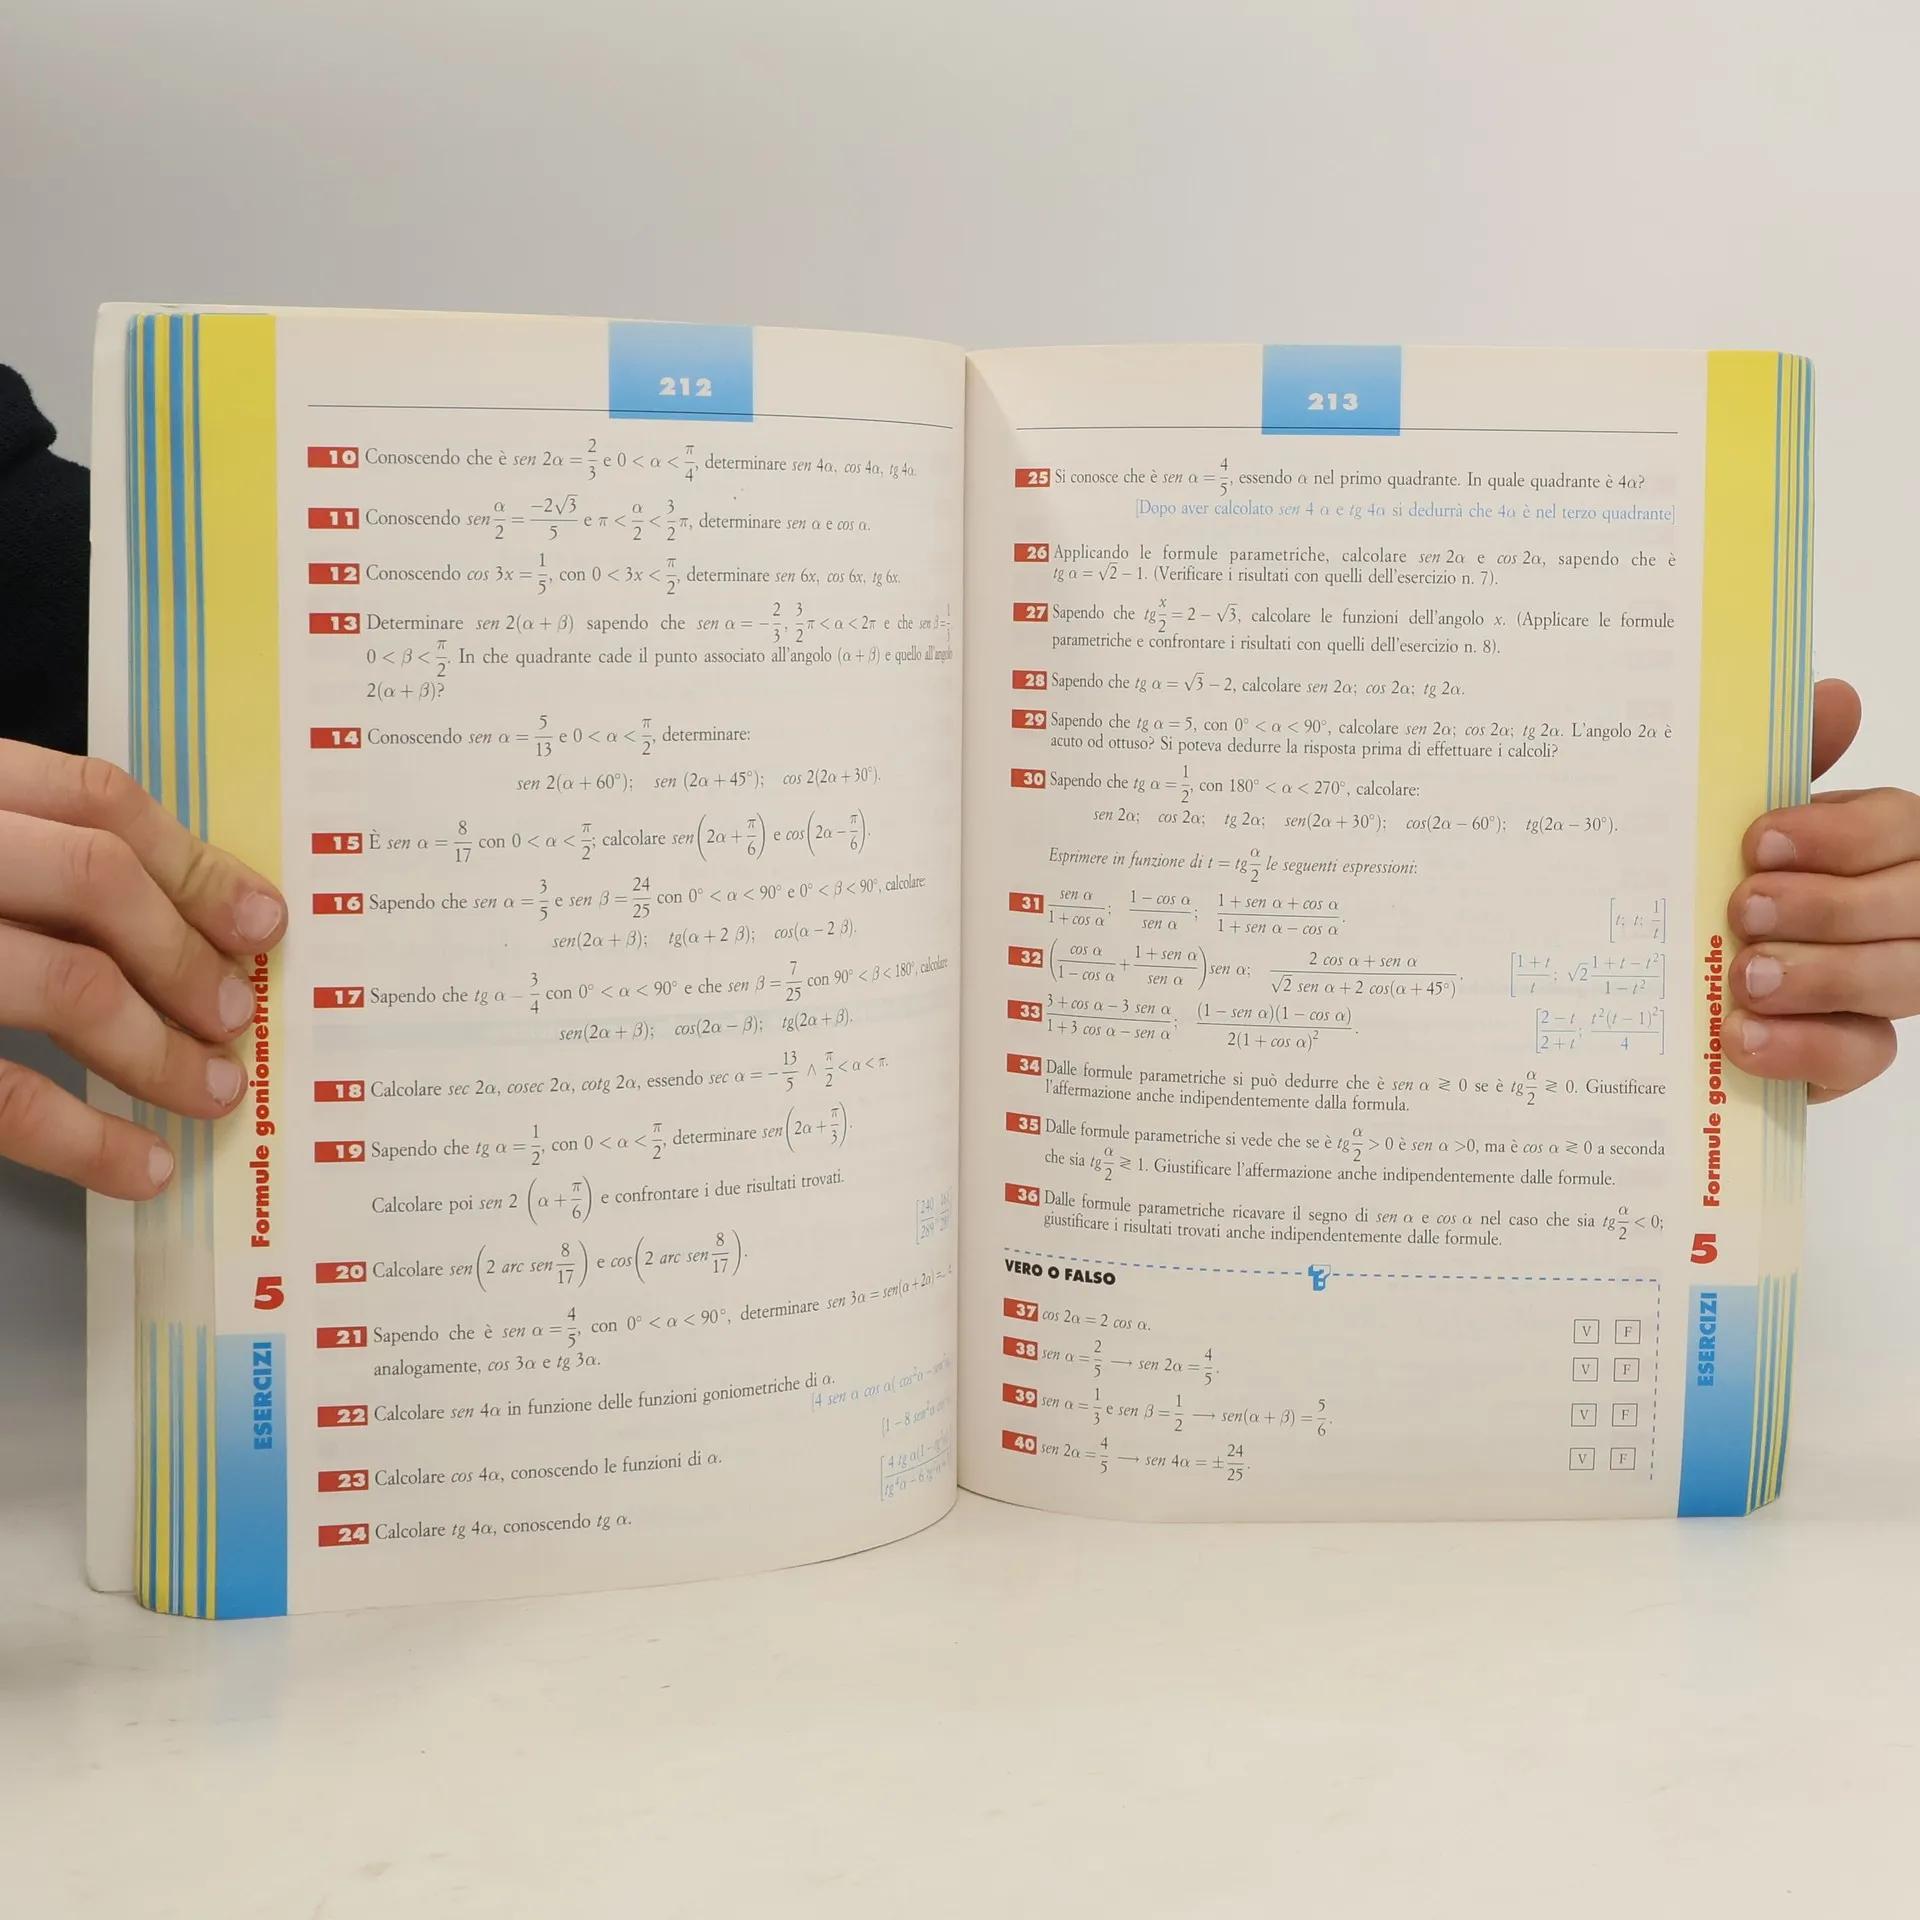 212
10 Conoscendo che è sen 2α = 2/3 e 0 < α < π/4, determinare sen 4α, cos 4α, tg 4α.
11 Conoscendo sen α/2 = -2√3/5 e π < α/2 < 3/2 π, determinare sen α e cos α.
12 Conoscendo cos 3x = 1/5, con 0 < 3x < π/2, determinare sen 6x, cos 6x, tg 6x.
13 Determinare sen 2(α + β) sapendo che sen α = -2/3, 3/2 π < α < 2π e che sen β =
0 < β < π/2. In che quadrante cade il punto associato all'angolo (α + β) e quello all'angolo
2(α + β)?
14 Conoscendo sen α = 5/13 e 0 < α < π/2, determinare:
sen 2(α + 60°); sen (2α + 45°); cos 2(2α + 30°).
15 È sen α = 8/17 con 0 < α < π/2; calcolare sen(2α + π/6) e cos(2α - π/6).
16 Sapendo che sen α = 3/5 e sen β = 24/25 con 0° < α < 90° e 0° < β < 90°, calcolare:
sen(2α + β); tg(α + 2 β); cos(α - 2 β).
17 Sapendo che tg α - 3/4 con 0° < α < 90° e che sen β = 7/25 con 90° < β < 180°, calcolare
sen(2α + β); cos(2α - β); tg(2α + β).
18 Calcolare sec 2α, cosec 2α, cotg 2α, essendo sec α = -13/5 ∧ π/2 < α < π.
19 Sapendo che tg α = 1/2, con 0 < α < π/2, determinare sen(2α + π/3).
Calcolare poi sen 2 (α + π/6) e confrontare i due risultati trovati.
[240/289
20 Calcolare sen(2 arc sen 8/17) e cos(2 arc sen 8/17).
21 Sapendo che è sen α = 4/5, con 0° < α < 90°, determinare sen 3α = sen(α + 2α) =
analogamente, cos 3α e tg 3α.
22 Calcolare sen 4α in funzione delle funzioni goniometriche di α.
[4 sen α cos α( cos²α -
23 Calcolare cos 4α, conoscendo le funzioni di α.
[1 - 8 sen²α
24 Calcolare tg 4α, conoscendo tg α.
Formule goniometriche
5
ESERCIZI
213
25 Si conosce che è sen α = 4/5, essendo α nel primo quadrante. In quale quadrante è 4α?
[Dopo aver calcolato sen 4 α e tg 4α si dedurrà che 4α è nel terzo quadrante]
26 Applicando le formule parametriche, calcolare sen 2α e cos 2α, sapendo che è
tg α = √2 - 1. (Verificare i risultati con quelli dell'esercizio n. 7).
27 Sapendo che tg x/2 = 2 - √3, calcolare le funzioni dell'angolo x. (Applicare le formule
parametriche e confrontare i risultati con quelli dell'esercizio n. 8).
28 Sapendo che tg α = √3 - 2, calcolare sen 2α; cos 2α; tg 2α.
29 Sapendo che tg α = 5, con 0° < α < 90°, calcolare sen 2α; cos 2α; tg 2α. L'angolo 2α è
acuto od ottuso? Si poteva dedurre la risposta prima di effettuare i calcoli?
30 Sapendo che tg α = 1/2, con 180° < α < 270°, calcolare:
sen 2α; cos 2α; tg 2α; sen(2α + 30°); cos(2α - 60°); tg(2α - 30°).
Esprimere in funzione di t = tg α/2 le seguenti espressioni:
31 sen α/(1 + cos α); (1 - cos α)/sen α; (1 + sen α + cos α)/(1 + sen α - cos α). [t; t; 1/t]
32 (cos α/(1 - cos α) + (1 + sen α)/sen α) sen α; (2 cos α + sen α)/(√2 sen α + 2 cos(α + 45°)). [(1 + t)/t; √2 (1 + t - t²)/(1 - t²)]
33 (3 + cos α - 3 sen α)/(1 + 3 cos α - sen α); (1 - sen α)(1 - cos α)/(2(1 + cos α)²). [(2 - t)/(2 + t); t²(t - 1)²/4]
34 Dalle formule parametriche si può dedurre che è sen α ≷ 0 se è tg α/2 ≷ 0. Giustificare
l'affermazione anche indipendentemente dalla formula.
35 Dalle formule parametriche si vede che se è tg α/2 > 0 è sen α >0, ma è cos α ≷ 0 a seconda
che sia tg α/2 ≷ 1. Giustificare l'affermazione anche indipendentemente dalle formule.
36 Dalle formule parametriche ricavare il segno di sen α e cos α nel caso che sia tg α/2 < 0;
giustificare i risultati trovati anche indipendentemente dalle formule.
VERO O FALSO
?
37 cos 2α = 2 cos α. V F
38 sen α = 2/5 → sen 2α = 4/5. V F
39 sen α = 1/3 e sen β = 1/2 → sen(α + β) = 5/6. V F
40 sen 2α = 4/5 → sen 4α = ±24/25. V F
Formule goniometriche
5
ESERCIZI